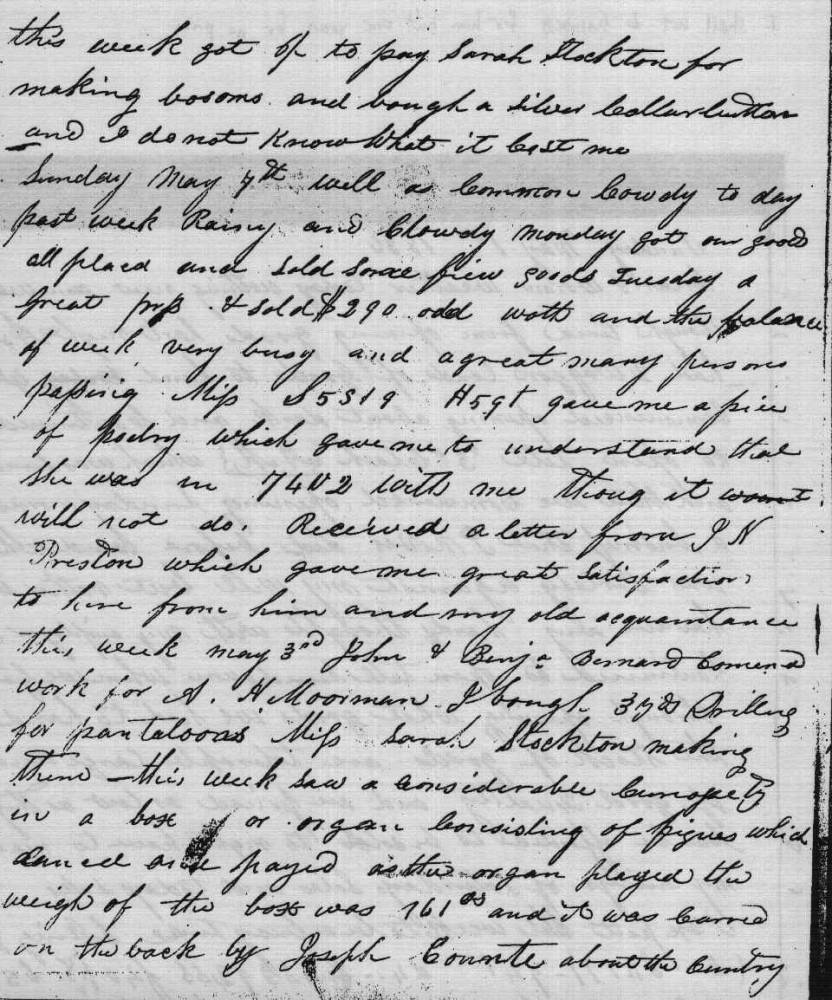 this week got of to pay Sarah Stockton for
making bosoms and bough a silver Collar button
and I do not Know What it Cost me
Sunday May 7th well as Common Cowdy to day
past week Rainy and Clowdy Monday got our good
all placd and sold some few goods Tuesday a
great press & sold $290 odd woth and the balance
of week very busy and a great many persons
passing Miss S5519 H59t gave me a piece
of poetry which gave me to understand that
she was in 74V2 with me thoug it
will not do. Received a letter from J N
Preston which gave me great satisfaction
to here from him and my old acquaintance
this week may 3rd John & Benja Bernard Comend
work for A. H. Moorman I bough 3 yds Drilling
for pantaloons Miss Sarah Stockton making
them - this week saw a Considerable Curiosety
in a box or organ Consisting of figues which
danced and as the organ played the
weigh of the box was 161 and it was Carred
on the back by Joseph Counte about the Cuntry